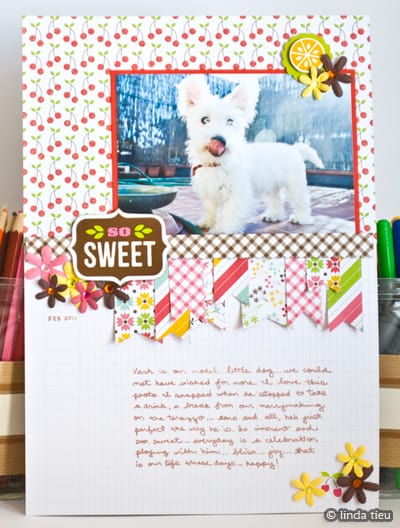 SO
SWEET
FEB 2011
is our model little dog... we could
not have wished for more. I love this
photo I snapped when he stopped to take
a drink, a break from our merrymaking
on the terazza... ears and all, he's just
perfect the way he is. So innocent and
so sweet... everyday is a celebration
playing with him... bliss... joy... that
is our life these days... happy!
© linda tieu